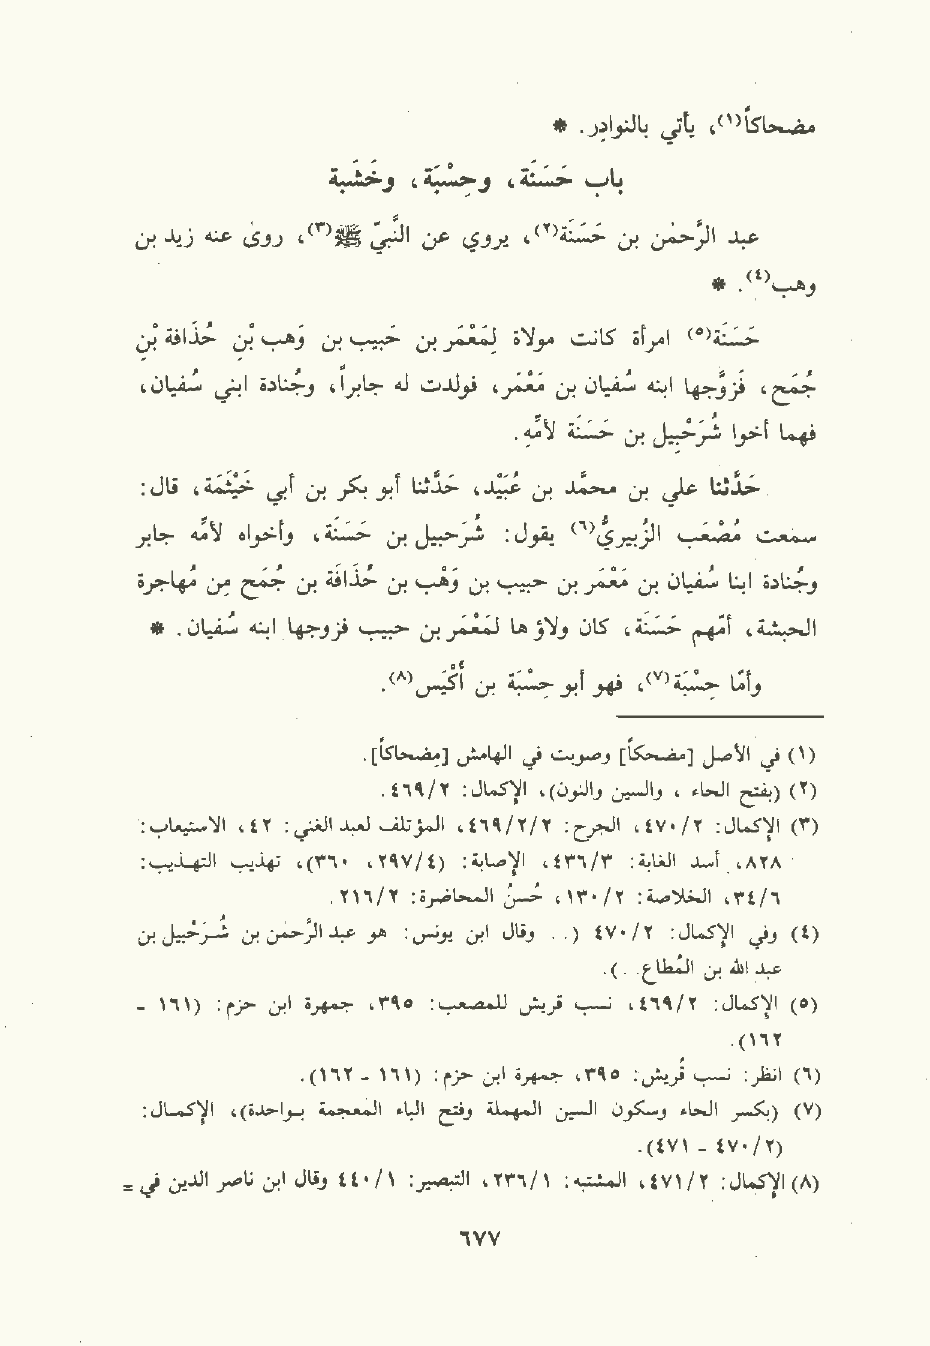 مضحاكاً(١)، يأتي بالنوادِر. *
باب حَسَنَة، وحِسْبَة، وخَشَبة
عبد الرَّحمٰن بن حَسَنَة(٢)، يروي عن النَّبيّ ﷺ(٣)، روىٰ عنه زيد بن
وهب(٤). *
حَسَنَة(٥) امرأة كانت مولاة لِمَعْمَر بن حَبيب بن وَهب بْنِ حُذَافة بْنِ
جُمَح، فزوَّجها ابنه سُفيان بن مَعْمَر، فولدت له جابراً، وجُنادة ابني سُفيان،
فهما أخوا شُرَحْبِيل بن حَسَنَة لأمِّه.
حَدَّثنا علي بن محمَّد بن عُبَيْد، حَدَّثنا أبو بكر بن أبي خَيْثَمَة، قال:
سمعت مُصْعَب الزُبيريُّ(٦) يقول: شُرَحبيل بن حَسَنَة، وأخواه لأمِّه جابر
وجُنادة ابنا سُفيان بن مَعْمَر بن حبيب بن وَهْب بن حُذَافَة بن جُمَح مِن مُهاجرة
الحبشة، أمّهم حَسَنَة، كان ولاؤها لمَعْمَر بن حبيب فزوجها ابنه سُفيان. *
وأمّا حِسْبَة(٧)، فهو أبو حِسْبَة بن أُكَيَس(٨).
(١) في الأصل [مضحكاً] وصوبت في الهامش [مِضحاكاً].
(٢) (بفتح الحاء ، والسين والنون)، الإكمال: ٤٦٩/٢.
(٣) الإكمال: ٤٧٠/٢، الجرح: ٤٦٩/٢/٢، المؤتلف لعبد الغني: ٤٢، الاستيعاب:
٨٢٨، أسد الغابة: ٤٣٦/٣، الإصابة: (٢٩٧/٤، ٣٦٠)، تهذيب التهـذيب:
٣٤/٦، الخلاصة: ١٣٠/٢، حُسنُ المحاضرة: ٢١٦/٢.
(٤) وفي الإكمال: ٤٧٠/٢ (. . وقال ابن يونس: هو عبد الرَّحمٰن بن شُـرَحْبيل بن
عبد الله بن المُطاع. .).
(٥) الإكمال: ٤٦٩/٢، نسـب قريش للمصعب: ٣٩٥، جمهرة ابن حزم: (١٦١ -
١٦٢).
(٦) انظر: نسب قُريش: ٣٩٥، جمهرة ابن حزم: (١٦١ - ١٦٢).
(٧) (بكسر الحاء وسكون السين المهملة وفتح الباء المعجمة بـواحدة)، الإكمـال:
(٤٧٠/٢ - ٤٧١).
(٨) الإكمال: ٤٧١/٢، المشتبه: ٢٣٦/١، التبصير: ٤٤٠/١ وقال ابن ناصر الدين في =
٦٧٧